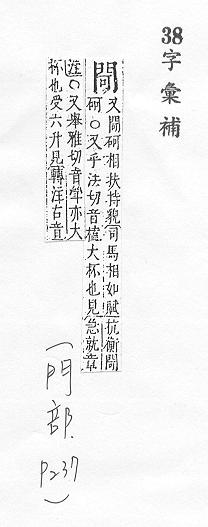 38字彙補
閜
又閜砢相扶持貌司馬相如賦抗衡閜
砢○又乎法切音榼大杯也見急就章
註○又舉雅切音斝亦大
杯也受六升見轉注古音
(門部 P237)